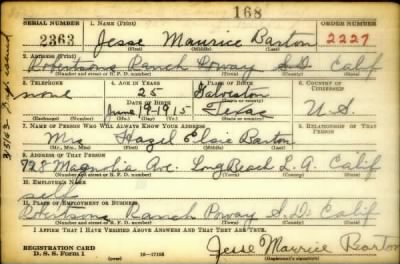 168
SERIAL NUMBER 1. NAME (Print) ORDER NUMBER
2363 Jesse Maurice Barton 2227
(First) (Middle) (Last)
2. ADDRESS (Print)
Robertsons Ranch Poway S.D. Calif
(Number and street or R. F. D. number) (Town) (County) (State)
3. TELEPHONE 4. AGE IN YEARS 5. PLACE OF BIRTH 6. COUNTRY OF CITIZENSHIP
none 25 Galveston
DATE OF BIRTH
June 19 1915 Texas U.S.
(Exchange) (Number) (Mo.) (Day) (Yr.) (State or country)
7. NAME OF PERSON WHO WILL ALWAYS KNOW YOUR ADDRESS 8. RELATIONSHIP OF THAT PERSON
Mrs Hazel Elsie Barton
(Mr., Mrs., Miss) (First) (Middle) (Last)
9. ADDRESS OF THAT PERSON
728 Magnolia Ave. Long Beach L.A. Calif
(Number and street or R. F. D. number) (Town) (County) (State)
10. EMPLOYER'S NAME
self
11. PLACE OF EMPLOYMENT OR BUSINESS
Robertsons Ranch Poway S.D. Calif
(Number and street or R. F. D. number) (Town) (County) (State)
I AFFIRM THAT I HAVE VERIFIED ABOVE ANSWERS AND THAT THEY ARE TRUE.
REGISTRATION CARD
D. S. S. Form 1 (over) Jesse Maurice Barton
(Registrant's signature)